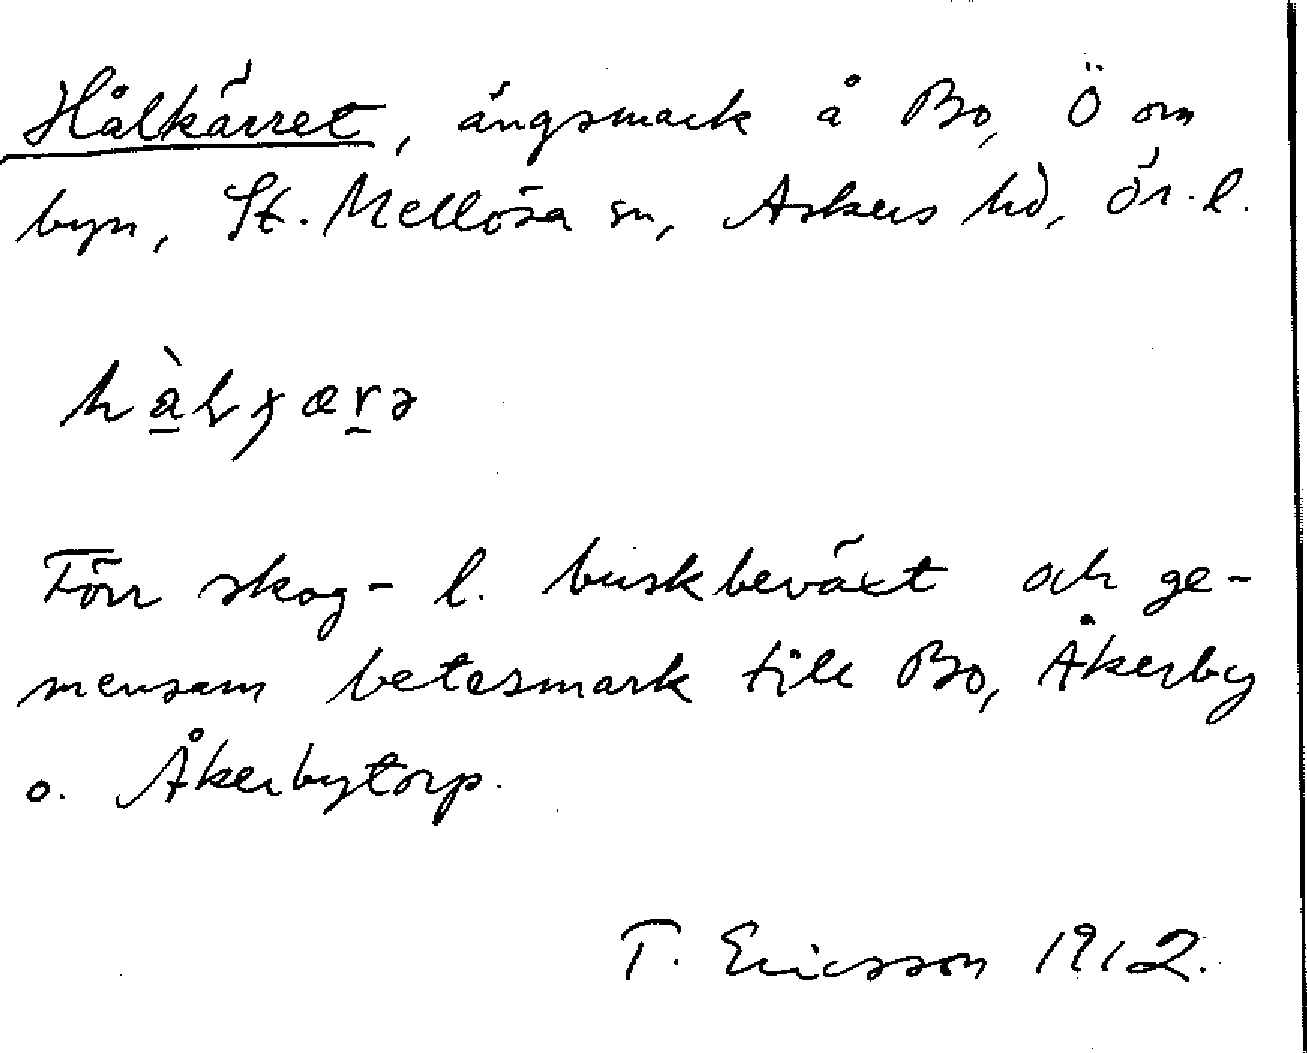 Hålkärret, ängsmark å Bo, Ö om
byn, St. Mellösa sn, Askers hd, ör. l.
Förr skog- l. buskbeväxt och ge-
mensam betesmark till Bo, Åkerby
o. Åkerbytorp.
T. Ericsson 1912.